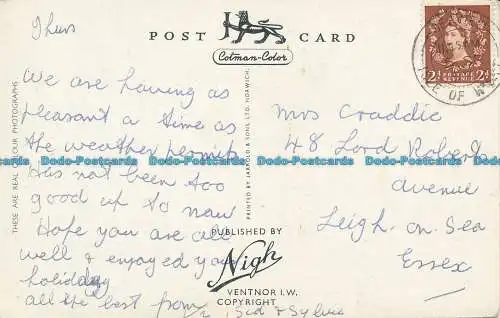 Thurs
POST CARD
Cotman-Color
We are having as
pleasant a time as
the weather permits
Has not been too
good up to now
Hope you are all
well & enjoyed your
holiday
all the best from
Sid & Sylvia
Mrs Craddic
48 Lord Roberts
Avenue
Leigh. on Sea
Essex
THESE ARE REAL COLOUR PHOTOGRAPHS
PRINTED BY JARROLD & SONS LTD. NORWICH.
PUBLISHED BY
Nigh
VENTNOR I.W.
COPYRIGHT
2d POSTAGE REVENUE 2d
OF
Dodo-Postcards Dodo-Postcards Dodo-Postcards Dodo-Postcards Dodo-Postcards
Dodo-Postcards Dodo-Postcards Dodo-Postcards Dodo-Postcards Dodo-Postcards